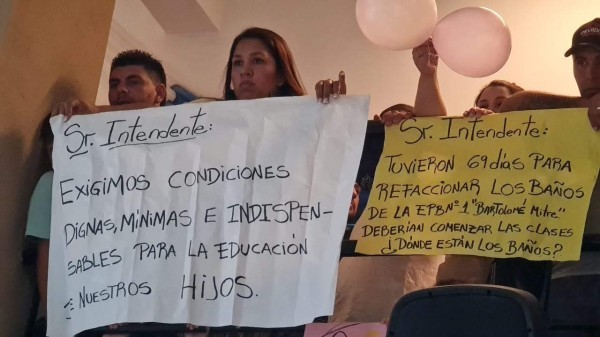 Sr. Intendente:
EXIGIMOS CONDICIONES
DIGNAS, MÍNIMAS E INDISPEN-
SABLES PARA LA EDUCACIÓN
NUESTROS HIJOS.
Sr. Intendente:
TUVIERON 69 días PARA
REFACCIONAR LOS BAÑOS
DE LA EPB Nº 1 "BARTOLOMÉ MITRE"
DEBERÍAN COMENZAR LAS CLASES
¿DÓNDE ESTÁN LOS BAÑOS?